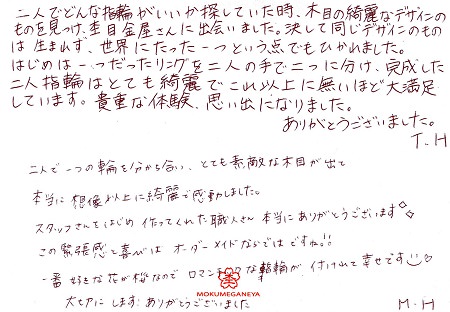 二人でどんな指輪がいいか探していた時、木目の綺麗なデザインの
ものを見つけ、杢目金屋さんに出会いました。決して同じデザインのもの
は生まれず、世界にたった一つという点でもひかれました。
はじめは一つだったリングを二人の手で二つに分け、完成した
二人指輪はとても綺麗でこれ以上に無いほど大満足
しています。貴重な体験、思い出になりました。
ありがとうございました。
T.H
二人で一つの輪を分かち合い、とても素敵な木目が出て
本当に想像以上に綺麗で感動しました。
スタッフさんをはじめ作ってくれた職人さん本当にありがとうございます
この緊張感と喜びはオーダーメイドならではですね!!
一番好きな花が桜なのでロマンチックな指輪が、付けれて幸せです
大切にします!ありがとうございました
MOKUMEGANEYA
M.H